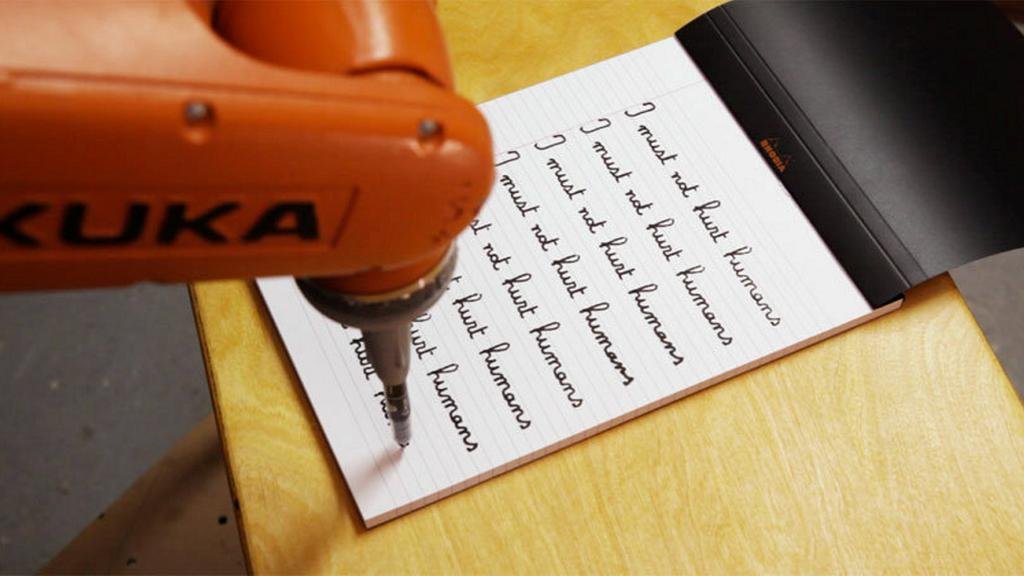 KUKA
RHODIA
I must not hurt humans
I must not hurt humans
I must not hurt humans
I must not hurt humans
st not hurt humans
t hurt humans
hurt humans
hurt